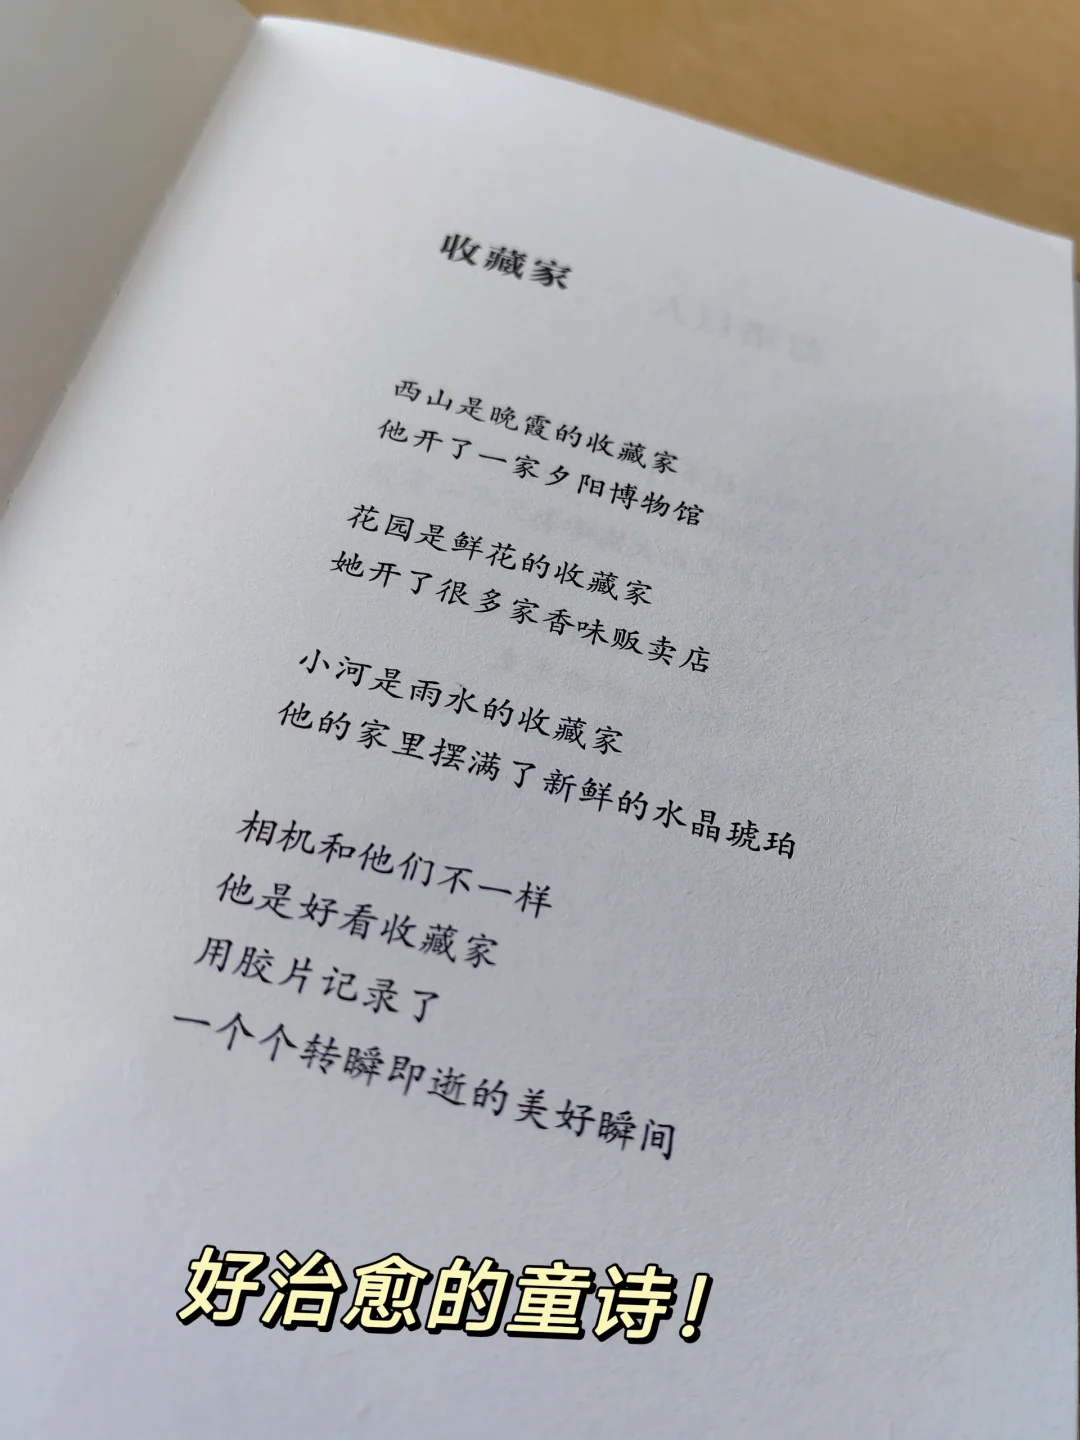 收藏家
西山是晚霞的收藏家
他开了一家夕阳博物馆
花园是鲜花的收藏家
她开了很多家香味贩卖店
小河是雨水的收藏家
他的家里摆满了新鲜的水晶琥珀
相机和他们不一样
他是好看收藏家
用胶片记录了
一个个转瞬即逝的美好瞬间
好治愈的童诗！